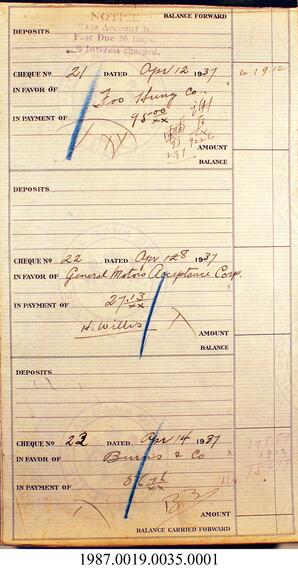 NOTICE BALANCE FORWARD
This Account is
DEPOSITS
Past Due 30 Days.
% Interest charged.
CHEQUE Nº 21 DATED Apr 12 1937
IN FAVOR OF Foo Hung Co.
IN PAYMENT OF 95.00/xx
AMOUNT
BALANCE
DEPOSITS
CHEQUE Nº 22 DATED Apr 128 1937
IN FAVOR OF General Motors Acceptance Corp.
IN PAYMENT OF 27.13/xx
H. Willis AMOUNT
BALANCE
DEPOSITS
CHEQUE Nº 23 DATED Apr 14 1937
IN FAVOR OF Burns & Co
IN PAYMENT OF
AMOUNT
BALANCE CARRIED FORWARD
1987.0019.0035.0001